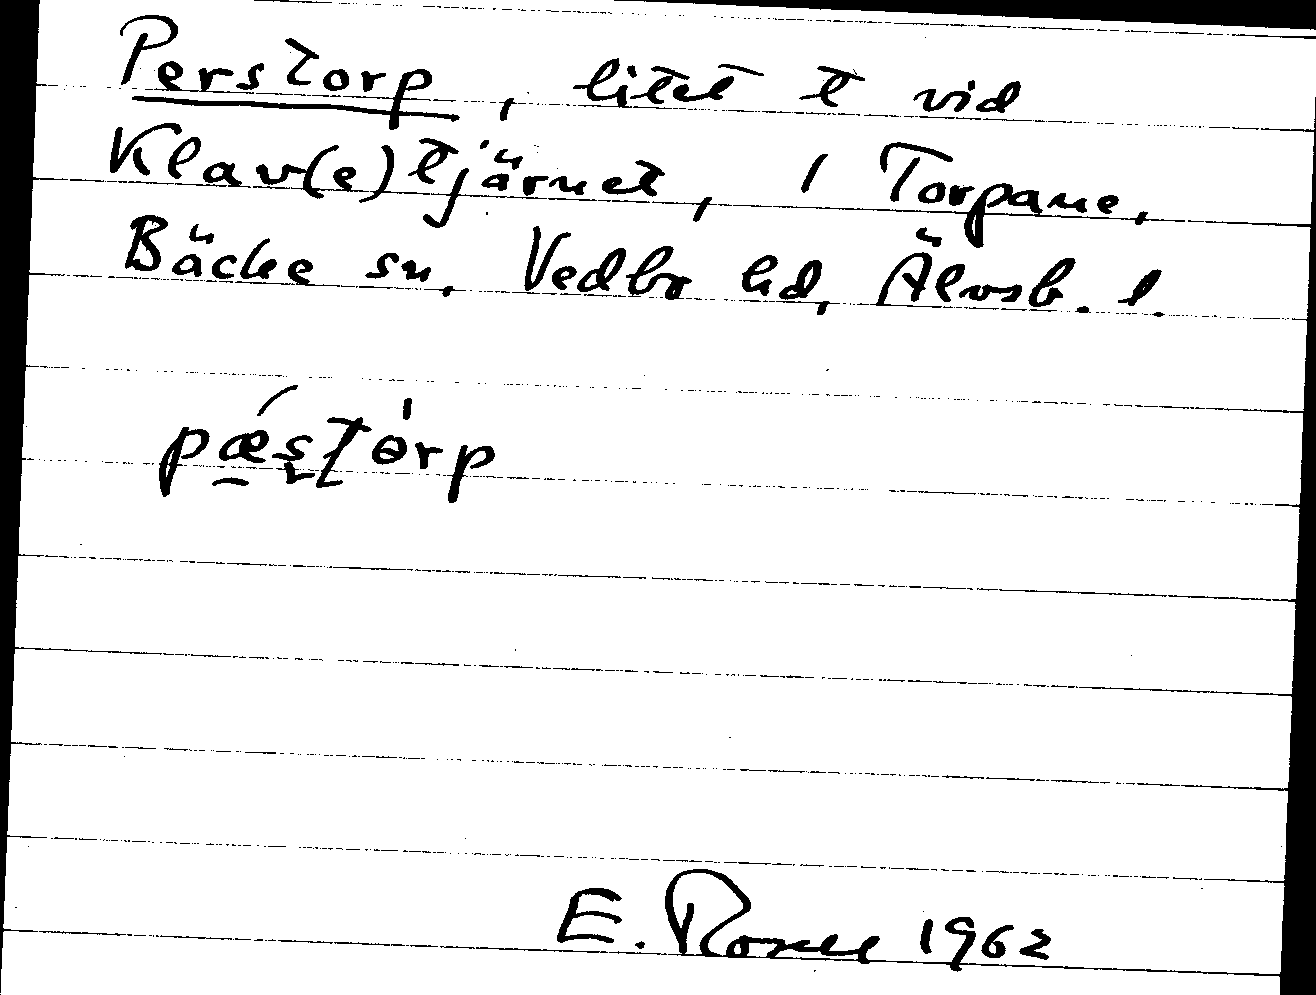 Perstorp, litet t vid
Klav(e)tjärnet, i Torpane,
Bäcke sn, Vedbo hd, Älvsb. l.
pæstorp
E. 1962